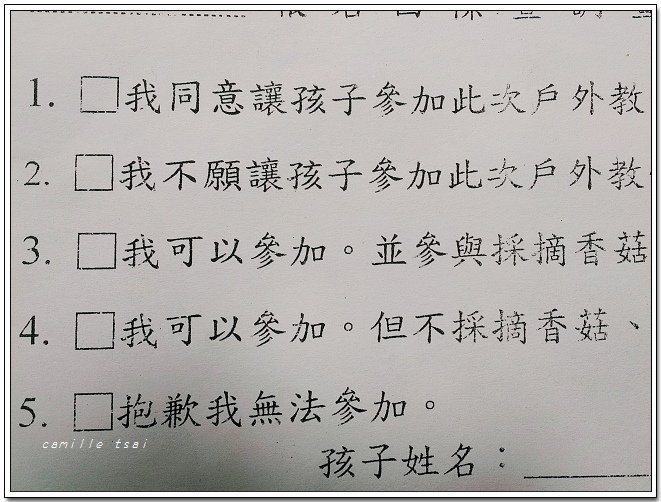 1. □我同意讓孩子參加此次戶外教
2. □我不願讓孩子參加此次戶外教
3. □我可以參加。並參與採摘香菇
4. □我可以參加。但不採摘香菇、
5. □抱歉我無法參加。
camille tsai
孩子姓名：